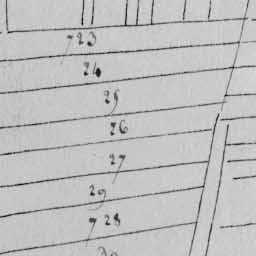 723
24
25
26
27
29
728